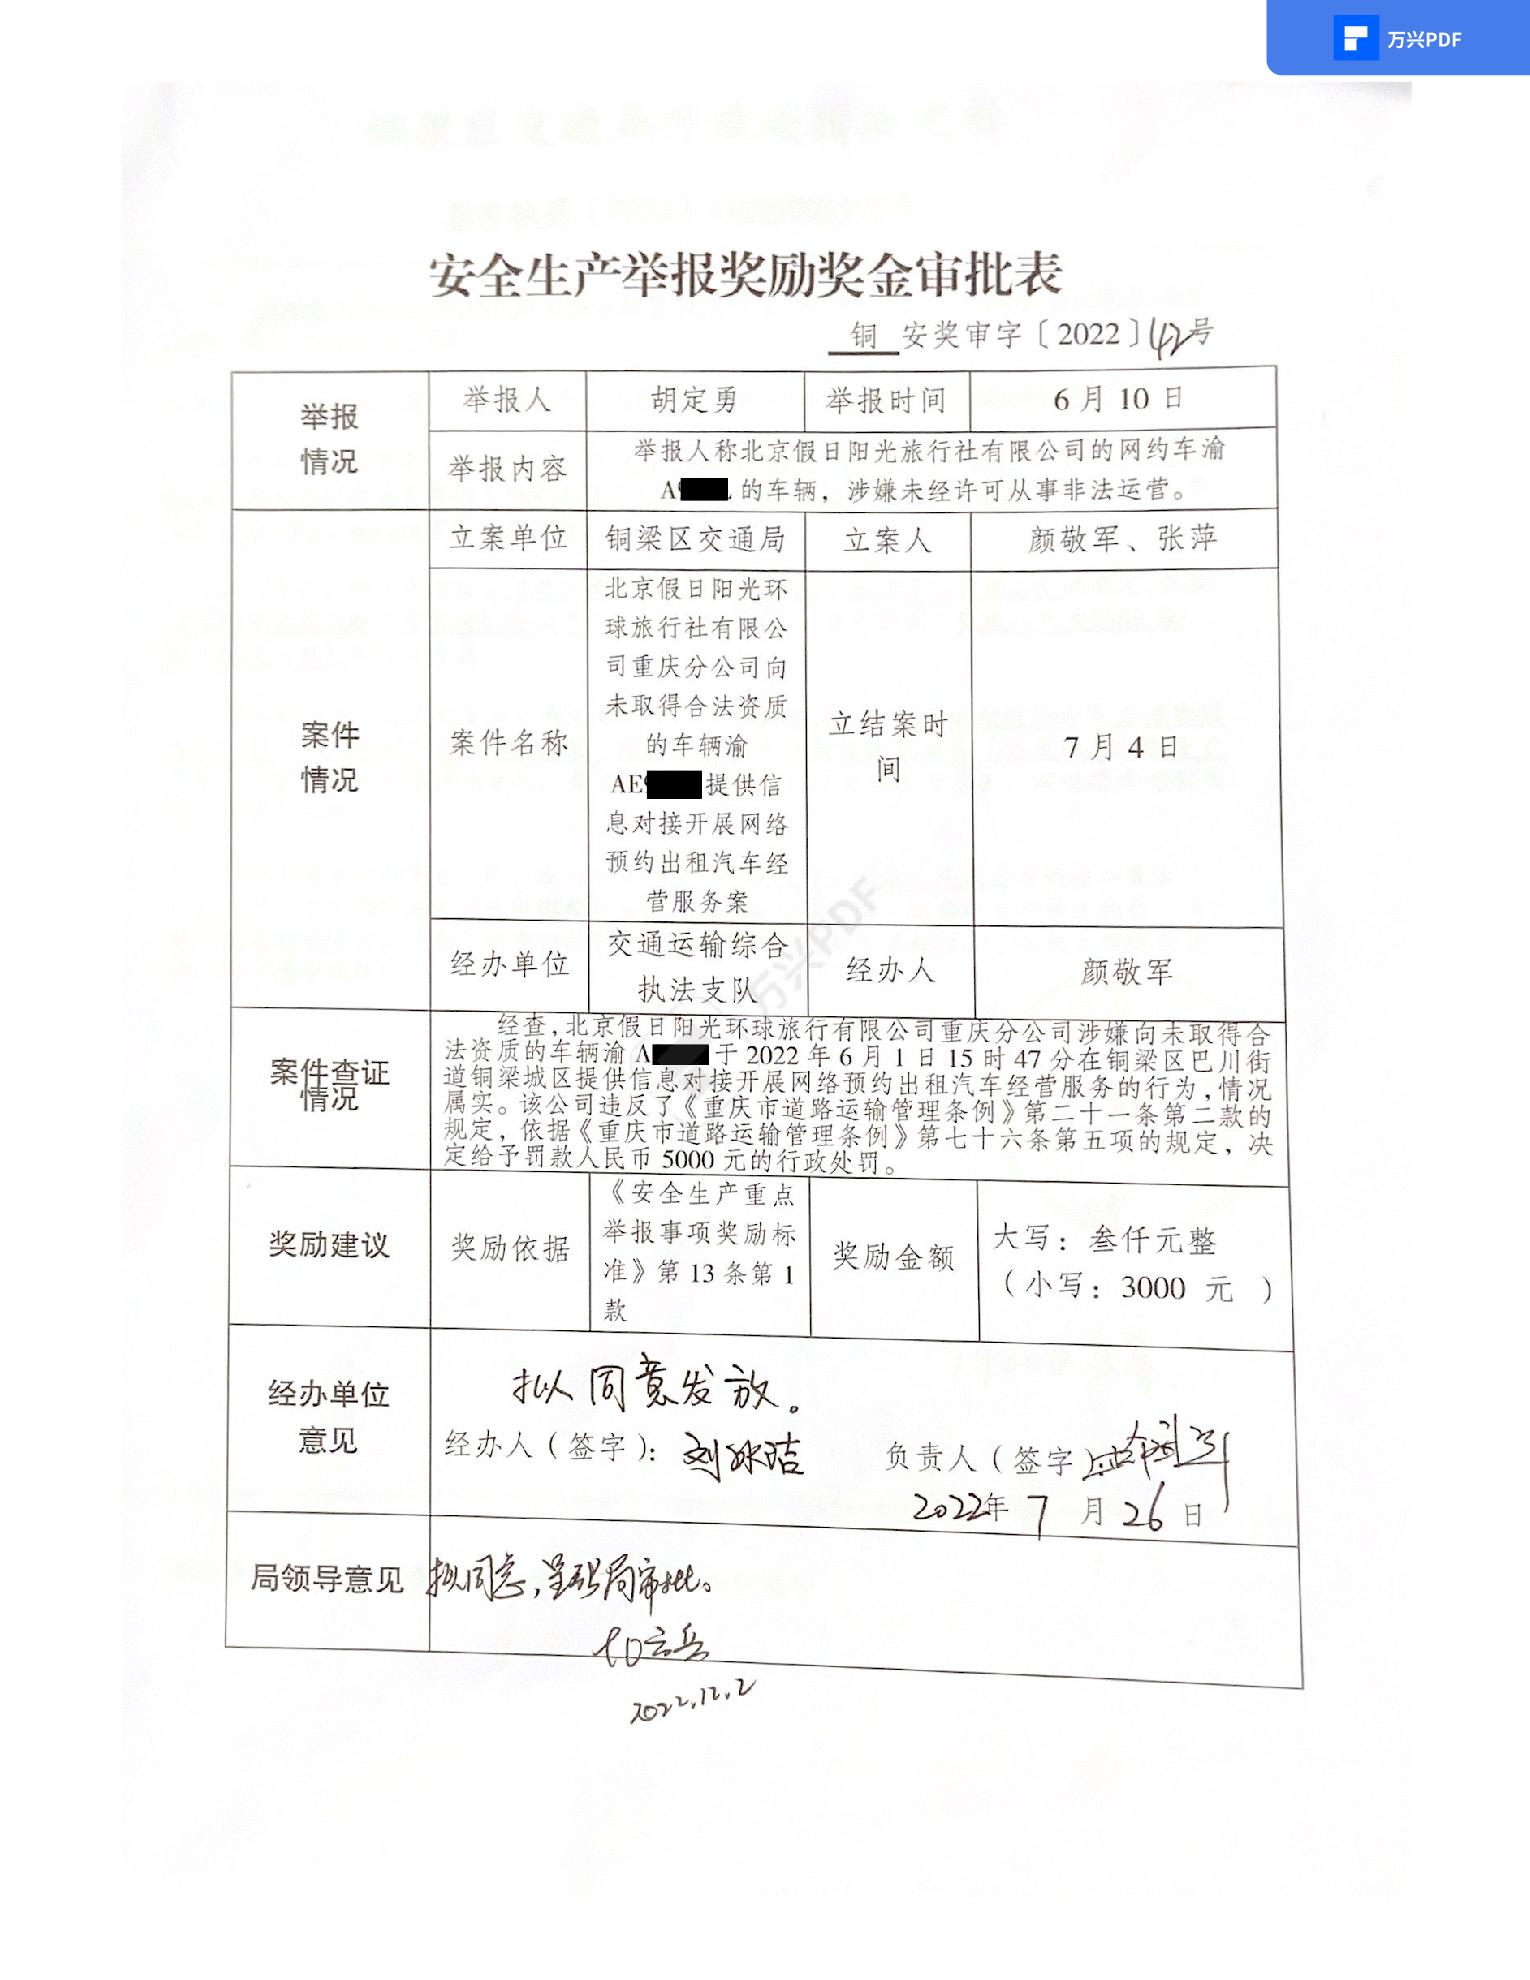 万兴PDF
安全生产举报奖励奖金审批表
铜 安奖审字〔2022〕42号
举报
情况
举报人
胡定勇
举报时间
6月10日
举报内容
举报人称北京假日阳光旅行社有限公司的网约车渝
A 的车辆，涉嫌未经许可从事非法运营。
案件
情况
立案单位
铜梁区交通局
立案人
颜敬军、张萍
案件名称
北京假日阳光环
球旅行社有限公
司重庆分公司向
未取得合法资质
的车辆渝
AE 提供信
息对接开展网络
预约出租汽车经
营服务案
立结案时
间
7月4日
经办单位
交通运输综合
执法支队
经办人
颜敬军
案件查证
情况
经查，北京假日阳光环球旅行有限公司重庆分公司涉嫌向未取得合
法资质的车辆渝A 于2022年6月1日15时47分在铜梁区巴川街
道铜梁城区提供信息对接开展网络预约出租汽车经营服务的行为，情况
属实。该公司违反了《重庆市道路运输管理条例》第二十一条第二款的
规定，依据《重庆市道路运输管理条例》第七十六条第五项的规定，决
定给予罚款人民币5000元的行政处罚。
奖励建议
奖励依据
《安全生产重点
举报事项奖励标
准》第13条第1
款
奖励金额
大写：叁仟元整
（小写：3000 元 ）
经办单位
意见
拟同意发放。
经办人（签字）：刘冰洁
负责人（签字）
2022年7月26日
局领导意见
拟同意，呈张局审批。
2022.12.2
万兴PDF